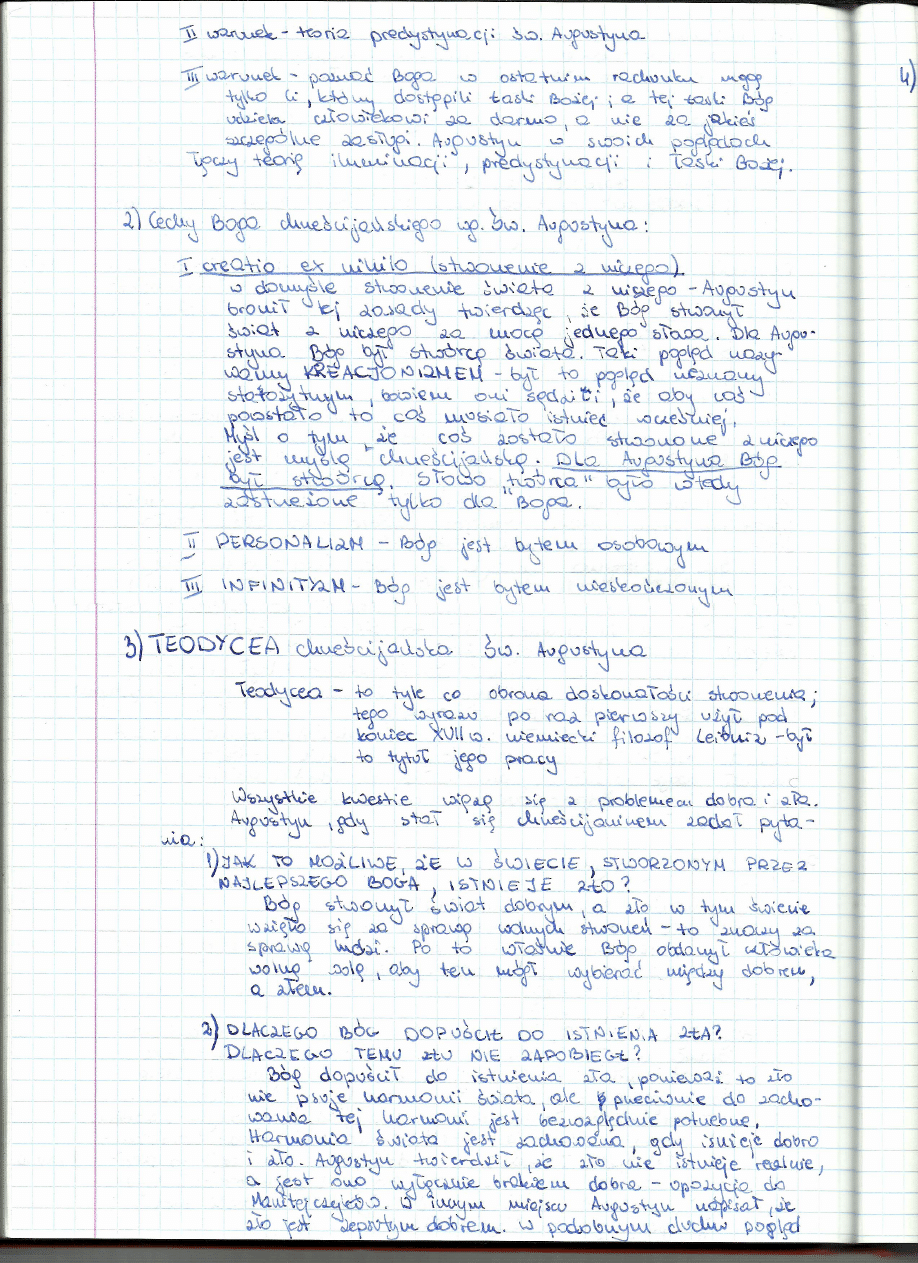 II warunek - teoria predystynacji św. Augustyna
III warunek - poznać Boga w ostatnim rachunku mogą
tylko ci, którzy dostąpili łaski Bożej i a tej łaski Bóg
udziela człowiekowi za darmo, a nie za jakieś
szczególne zasługi. Augustyn w swoich poglądach
łączy teorię iluminacji, predystynacji i łaski Bożej.
4)
2) Cechy Boga chrześcijańskiego wg. św. Augustyna:
I creatio ex nihilo (stworzenie z niczego)
w domyśle stworzenie świata z niczego - Augustyn
bronił tej zasady twierdząc, że Bóg stworzył
świat z niczego za mocą jednego słowa. Dla Augu-
styna Bóg był stwórcą świata. Taki pogląd nazy-
wamy KREACJONIZMEM - był to pogląd nieznany
starożytnym, bowiem oni sądzili, że aby coś
powstało to coś musiało istnieć wcześniej.
Myśl o tym, że coś zostało stworzone z niczego
jest myślą chrześcijańską. Dla Augustyna Bóg
był stwórcą. Słowo „twórca" było wtedy
zastrzeżone tylko dla Boga.
II PERSONALIZM - Bóg jest bytem osobowym
III INFINITYZM - Bóg jest bytem nieskończonym
3) TEODYCEA chrześcijańska św. Augustyna
Teodycea - to tyle co obrona doskonałości stworzenia;
tego wyrazu po raz pierwszy użył pod
koniec XVII w. niemiecki filozof Leibniz - był
to tytuł jego pracy
Wszystkie kwestie wiążą się z problemem dobra i zła.
Augustyn, gdy stał się chrześcijaninem zadał pyta-
nia:
1) JAK TO MOŻLIWE, ŻE W ŚWIECIE, STWORZONYM PRZEZ
NAJLEPSZEGO BOGA, ISTNIEJE ZŁO?
Bóg stworzył świat dobrym, a zło w tym świecie
wzięło się za sprawą wolnych stworzeń - to znaczy za
sprawą ludzi. Po to właśnie Bóg obdarzył człowieka
wolną wolą, aby ten mógł wybierać między dobrem,
a złem.
2) DLACZEGO BÓG DOPUŚCIŁ DO ISTNIENIA ZŁA?
DLACZEGO TEMU ZŁU NIE ZAPOBIEGŁ?
Bóg dopuścił do istnienia zła, ponieważ to zło
nie psuje harmonii świata, ale przeciwnie do zacho-
wania tej harmonii jest bezwzględnie potrzebne.
Harmonia świata jest zachowana, gdy isnieje dobro
i zło. Augustyn twierdził, że zło nie istnieje realnie,
a jest ono wyłącznie brakiem dobra - opozycja do
Manitejczejków. W innym miejscu Augustyn napisał, że
zło jest zepsutym dobrem. W podobnym duchu pogląd